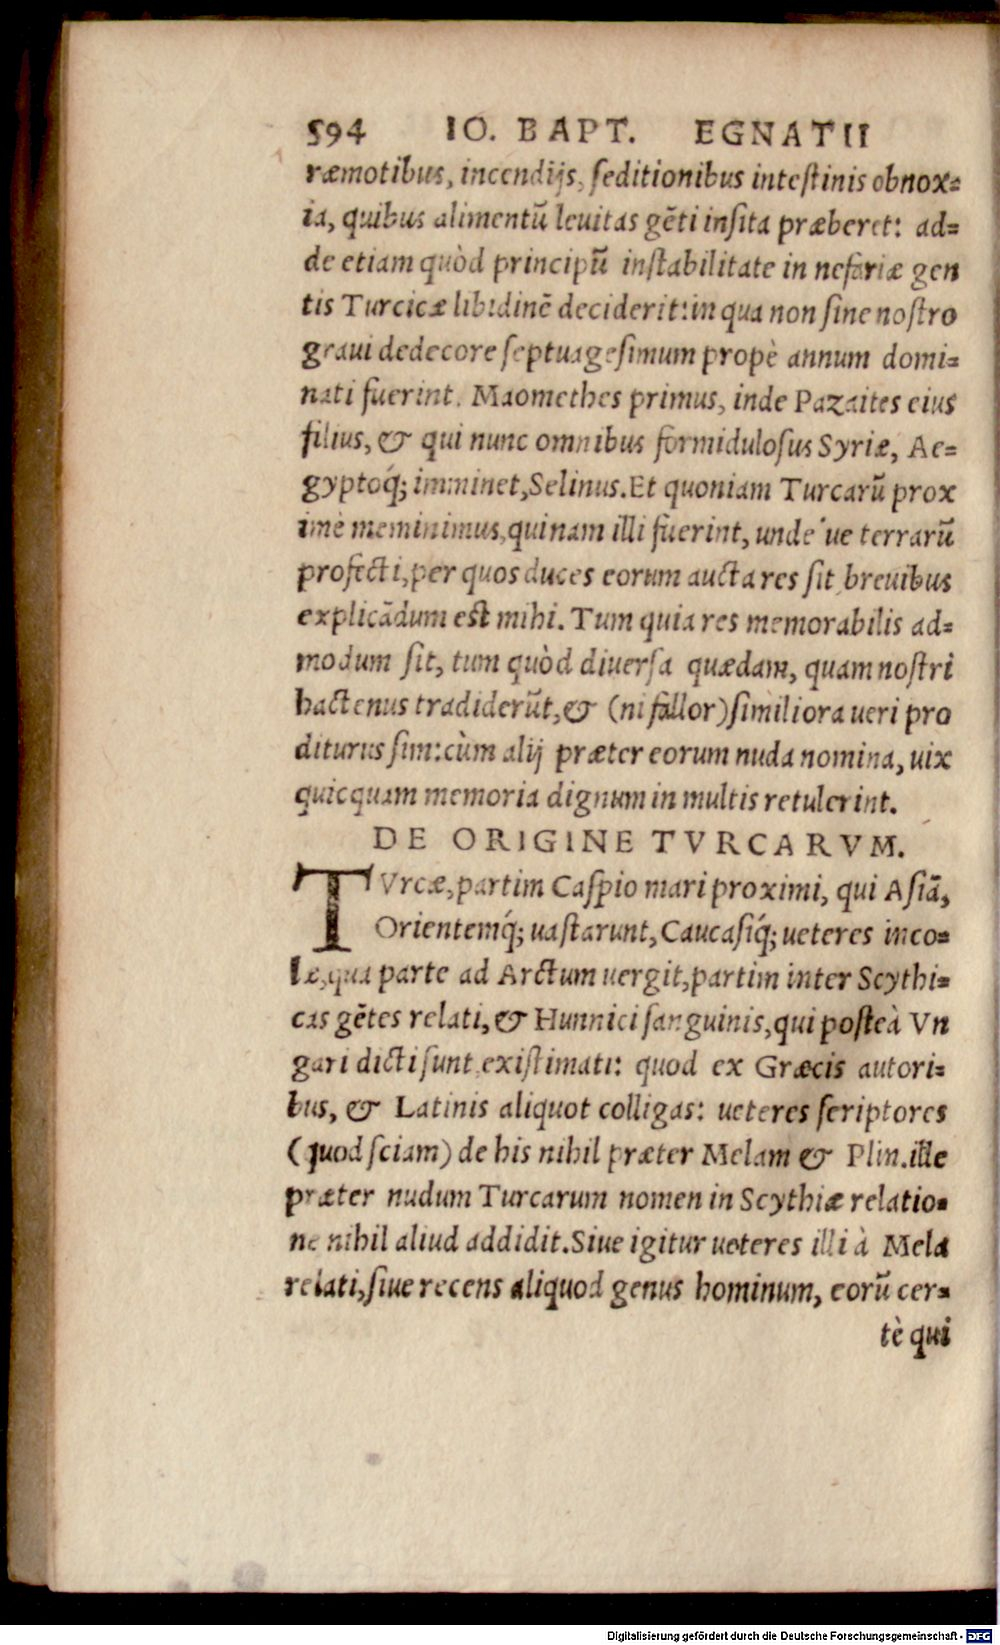 594 IO. BAPT. EGNATII
ræmotibus, incendijs, ſeditionibus inteſtinis obnox=
ia, quibus alimentū leuitas gēti inſita præberet: ad=
de etiam quòd principū inſtabilitate in nefariæ gen
tis Turcicæ libidinē deciderit: in qua non ſine noſtro
graui dedecore ſeptuageſimum propè annum domi=
nati fuerint. Maomethes primus, inde Pazaites eius
filius, & qui nunc omnibus formiduloſus Syriæ, Ae=
gyptoq́; imminet, Selinus. Et quoniam Turcarū prox
imè meminimus, quinam illi fuerint, unde ue terrarū
profecti, per quos duces eorum aucta res ſit, breuibus
explicādum est mihi. Tum quia res memorabilis ad=
modum ſit, tum quòd diuerſa quædam, quam noſtri
hactenus tradiderūt, & (ni fallor) ſimiliora ueri pro
diturus ſim: cùm alij præter eorum nuda nomina, uix
quicquam memoria dignum in multis retulerint.
DE ORIGINE TVRCARVM.
TVrcæ, partim Caſpio mari proximi, qui Aſiā,
Orientemq́; uaſtarunt, Caucaſiq́; ueteres inco=
læ, qua parte ad Arctum uergit, partim inter Scythi=
cas gētes relati, & Hunnici ſanguinis, qui poſteà Vn
gari dicti ſunt, exiſtimati: quod ex Græcis autori=
bus, & Latinis aliquot colligas: ueteres ſcriptores
(quod ſciam) de his nihil præter Melam & Plin. ille
præter nudum Turcarum nomen in Scythiæ relatio=
ne nihil aliud addidit. Siue igitur ueteres illi à Mela
relati, ſiue recens aliquod genus hominum, eorū cer=
tè qui
Digitalisierung gefördert durch die Deutsche Forschungsgemeinschaft - DFG